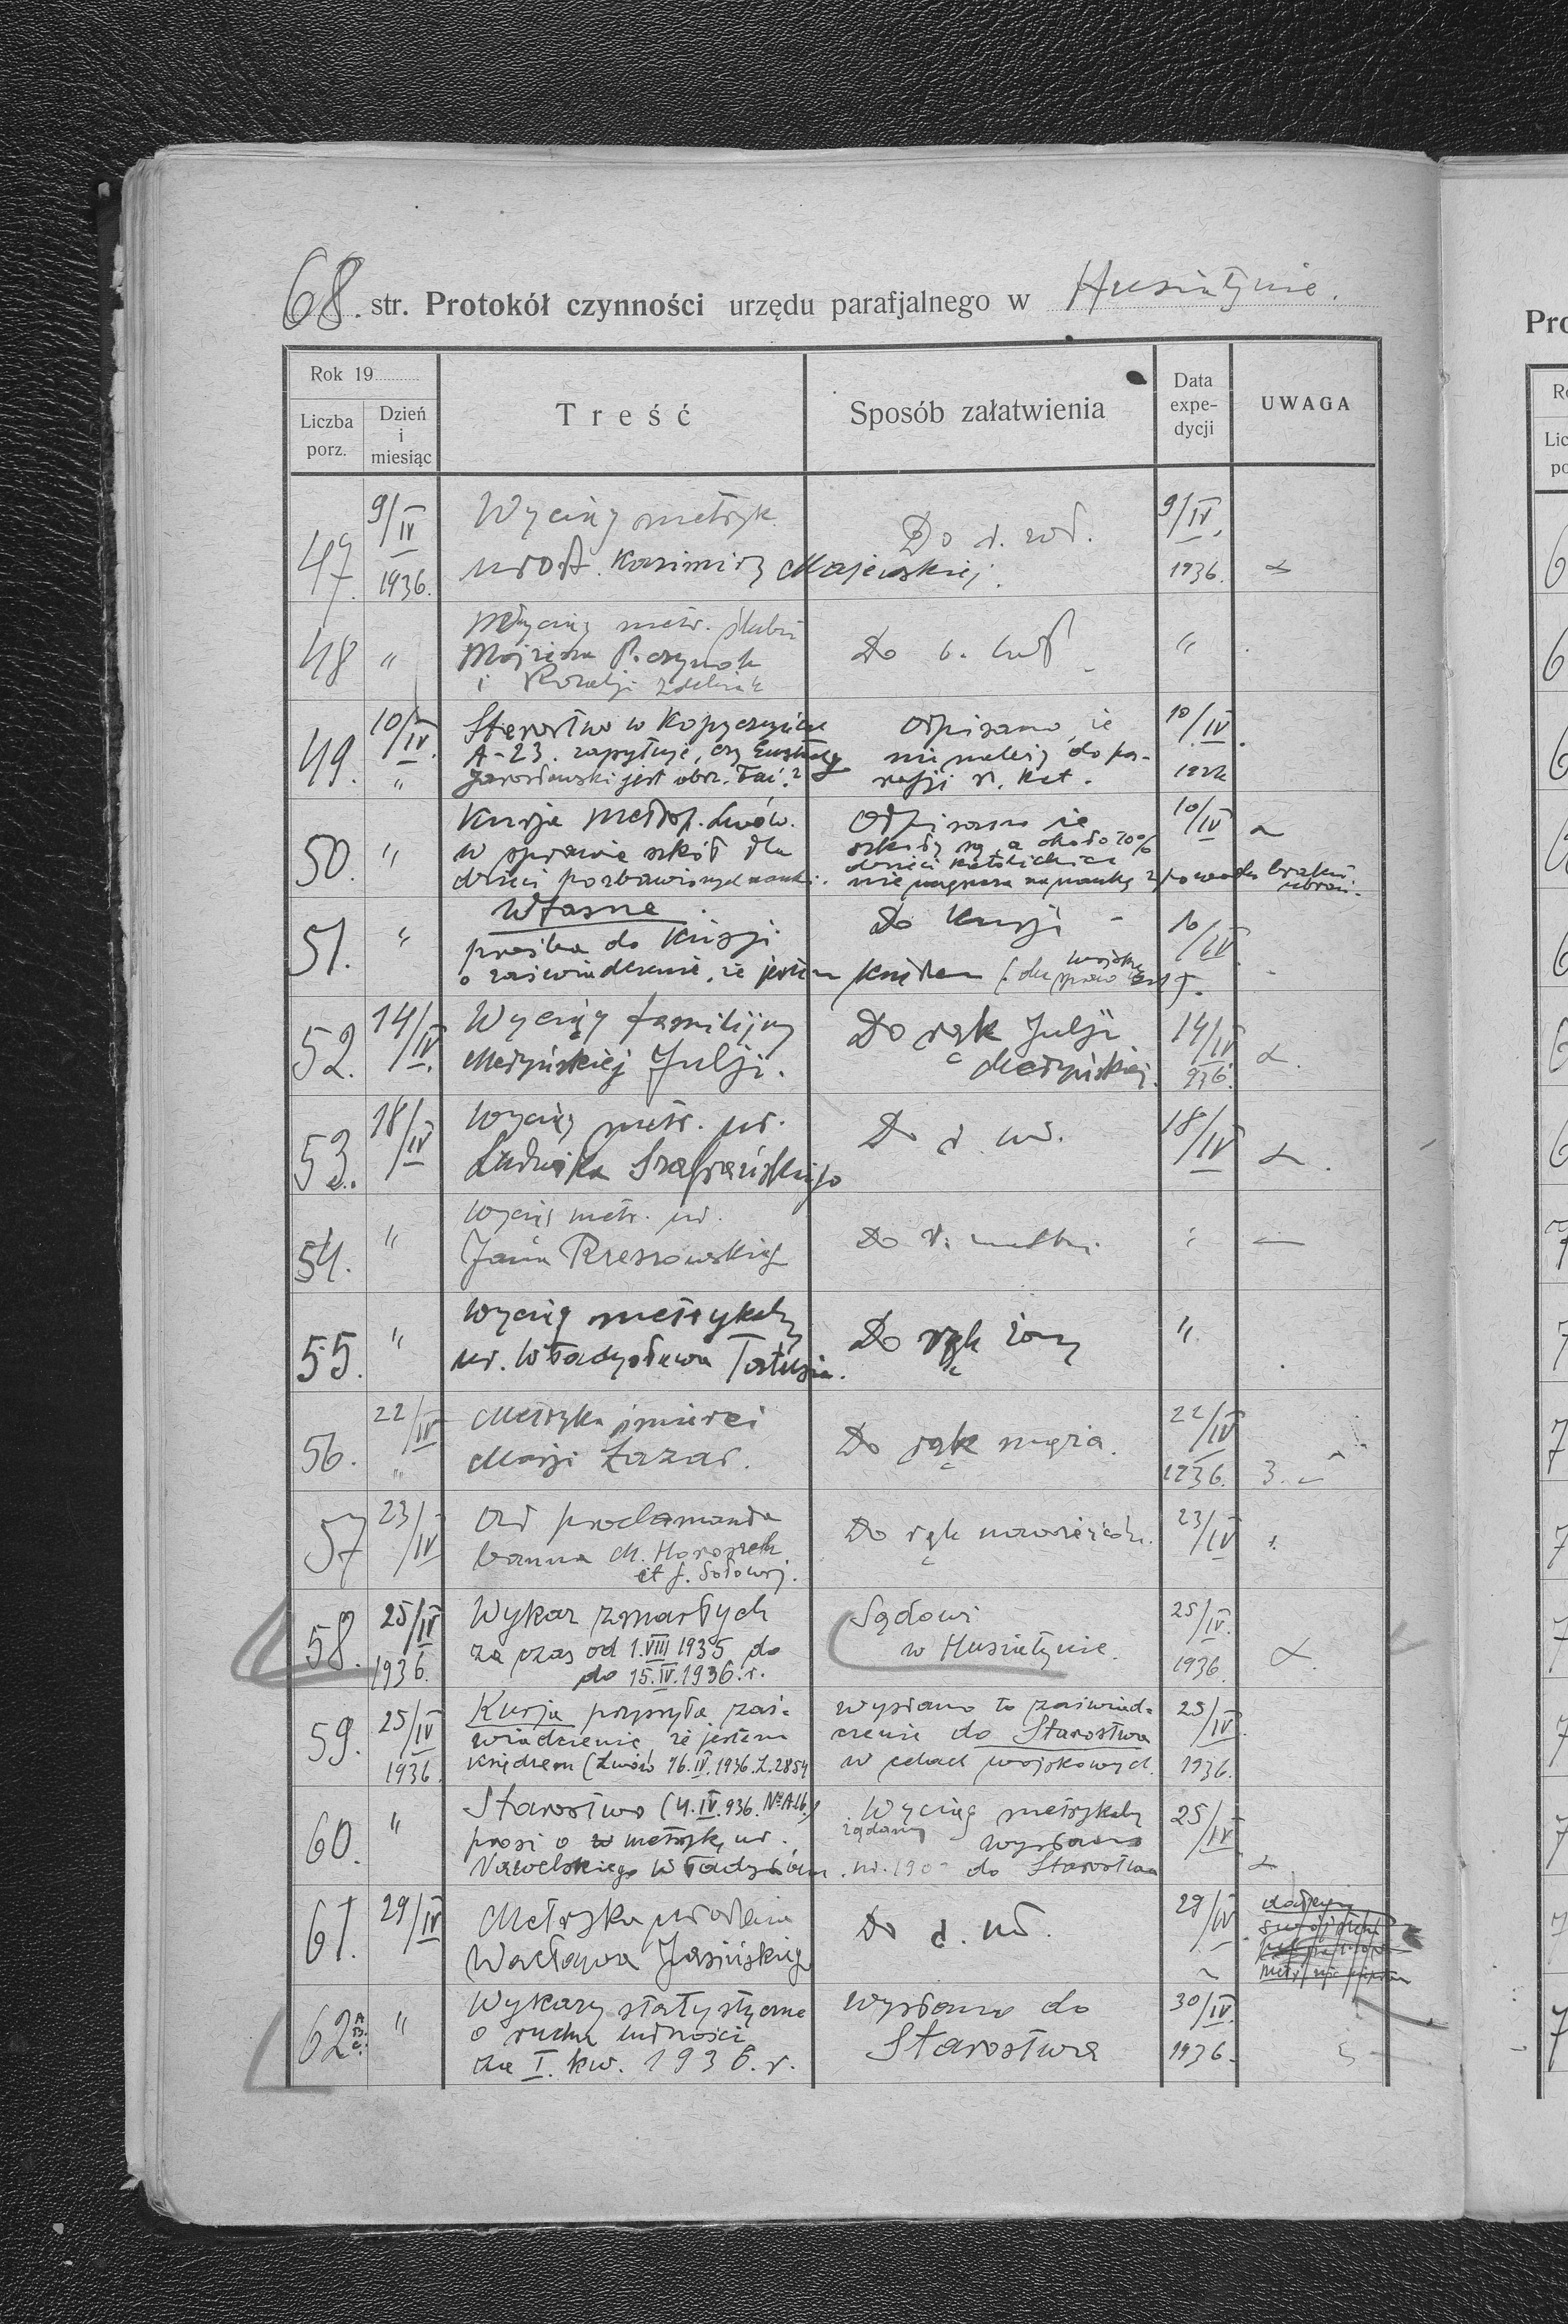 68. str. Protokół czynności urzędu parafjalnego w Husiatynie.
Rok 19
Liczba porz.
Dzień i miesiąc
Treść
Sposób załatwienia
Data expedycji
UWAGA
47. 9/IV 1936.
Wyciąg metryk.
urodz. Kazimiry Majewskiej.
Do r. rod.
9/IV. 1936.
48 "
Wyciąg metr. ślubu
i Rozalji
Do
"
49. 10/IV. "
Starostwo w Kopyczyńcach
A-23. zapytuje, czy Eustachy
Jarosławski jest obrz. łać.?
Odpisano, że
nie należy do pa-
rafji r. kat.
10/IV.
50. "
Kurja Metrop. Lwów.
w sprawie szkół dla
dzieci pozbawionych nauki.
Odpisano że
szkoły są, a około 20%
dzieci katolickich
nie uczęszcza na naukę z powodu braku
ubrań.
10/IV
51. "
Własne.
prośba do Kurji
o zaświadczenie, że jestem księdzem
Do Kurji
10/IV
52. 14/IV.
Wyciąg familijny
Medyńskiej Julji.
Do rąk Julji
Medyńskiej.
14/IV 936.
53. 18/IV
Wyciąg metr. ur.
Ludwika Szafrańskiego
Do r. wł.
18/IV
54. "
Wyciąg metr. ur.
Jana Rzeszowskiego
Do r. matki.
"
55. "
Wyciąg metrykalny
ur. Władysława Tatusia.
Do rąk żony
"
56. 22/IV "
Metryka śmierci
Marji Łazar.
Do rąk męża.
22/IV 1936.
57 23/IV
Od proclamanda
banna M. Horoszek
et J. Sołowij.
Do rąk nowożeńców.
23/IV
58. 25/IV 1936.
Wykaz zmarłych
za czas od 1.VIII 1935 do
do 15.IV.1936.r.
Sądowi
w Husiatynie.
25/IV. 1936.
59. 25/IV 1936.
Kurja przysyła zaś-
wiadczenie, że jestem
księdzem (Lwów 16.IV.1936.L.2854
Wysłano to zaświad-
czenie do Starostwa
w celach wojskowych.
25/IV. 1936.
60. "
Starostwo (4.IV.936. Nº A16.)
prosi o metrykę ur.
Nawelskiego Władysława
Wyciąg metrykalny
żądany wysłano
do Starostwa
25/IV
61. 29/IV
Metryka urodzenia
Wacława Jasińskiego
Do r. wł.
29/IV
62 A B. C. "
Wykazy statystyczne
o ruchu ludności
za I. kw. 1936.r.
Wysłano do
Starostwa
30/IV. 1936.
Pro